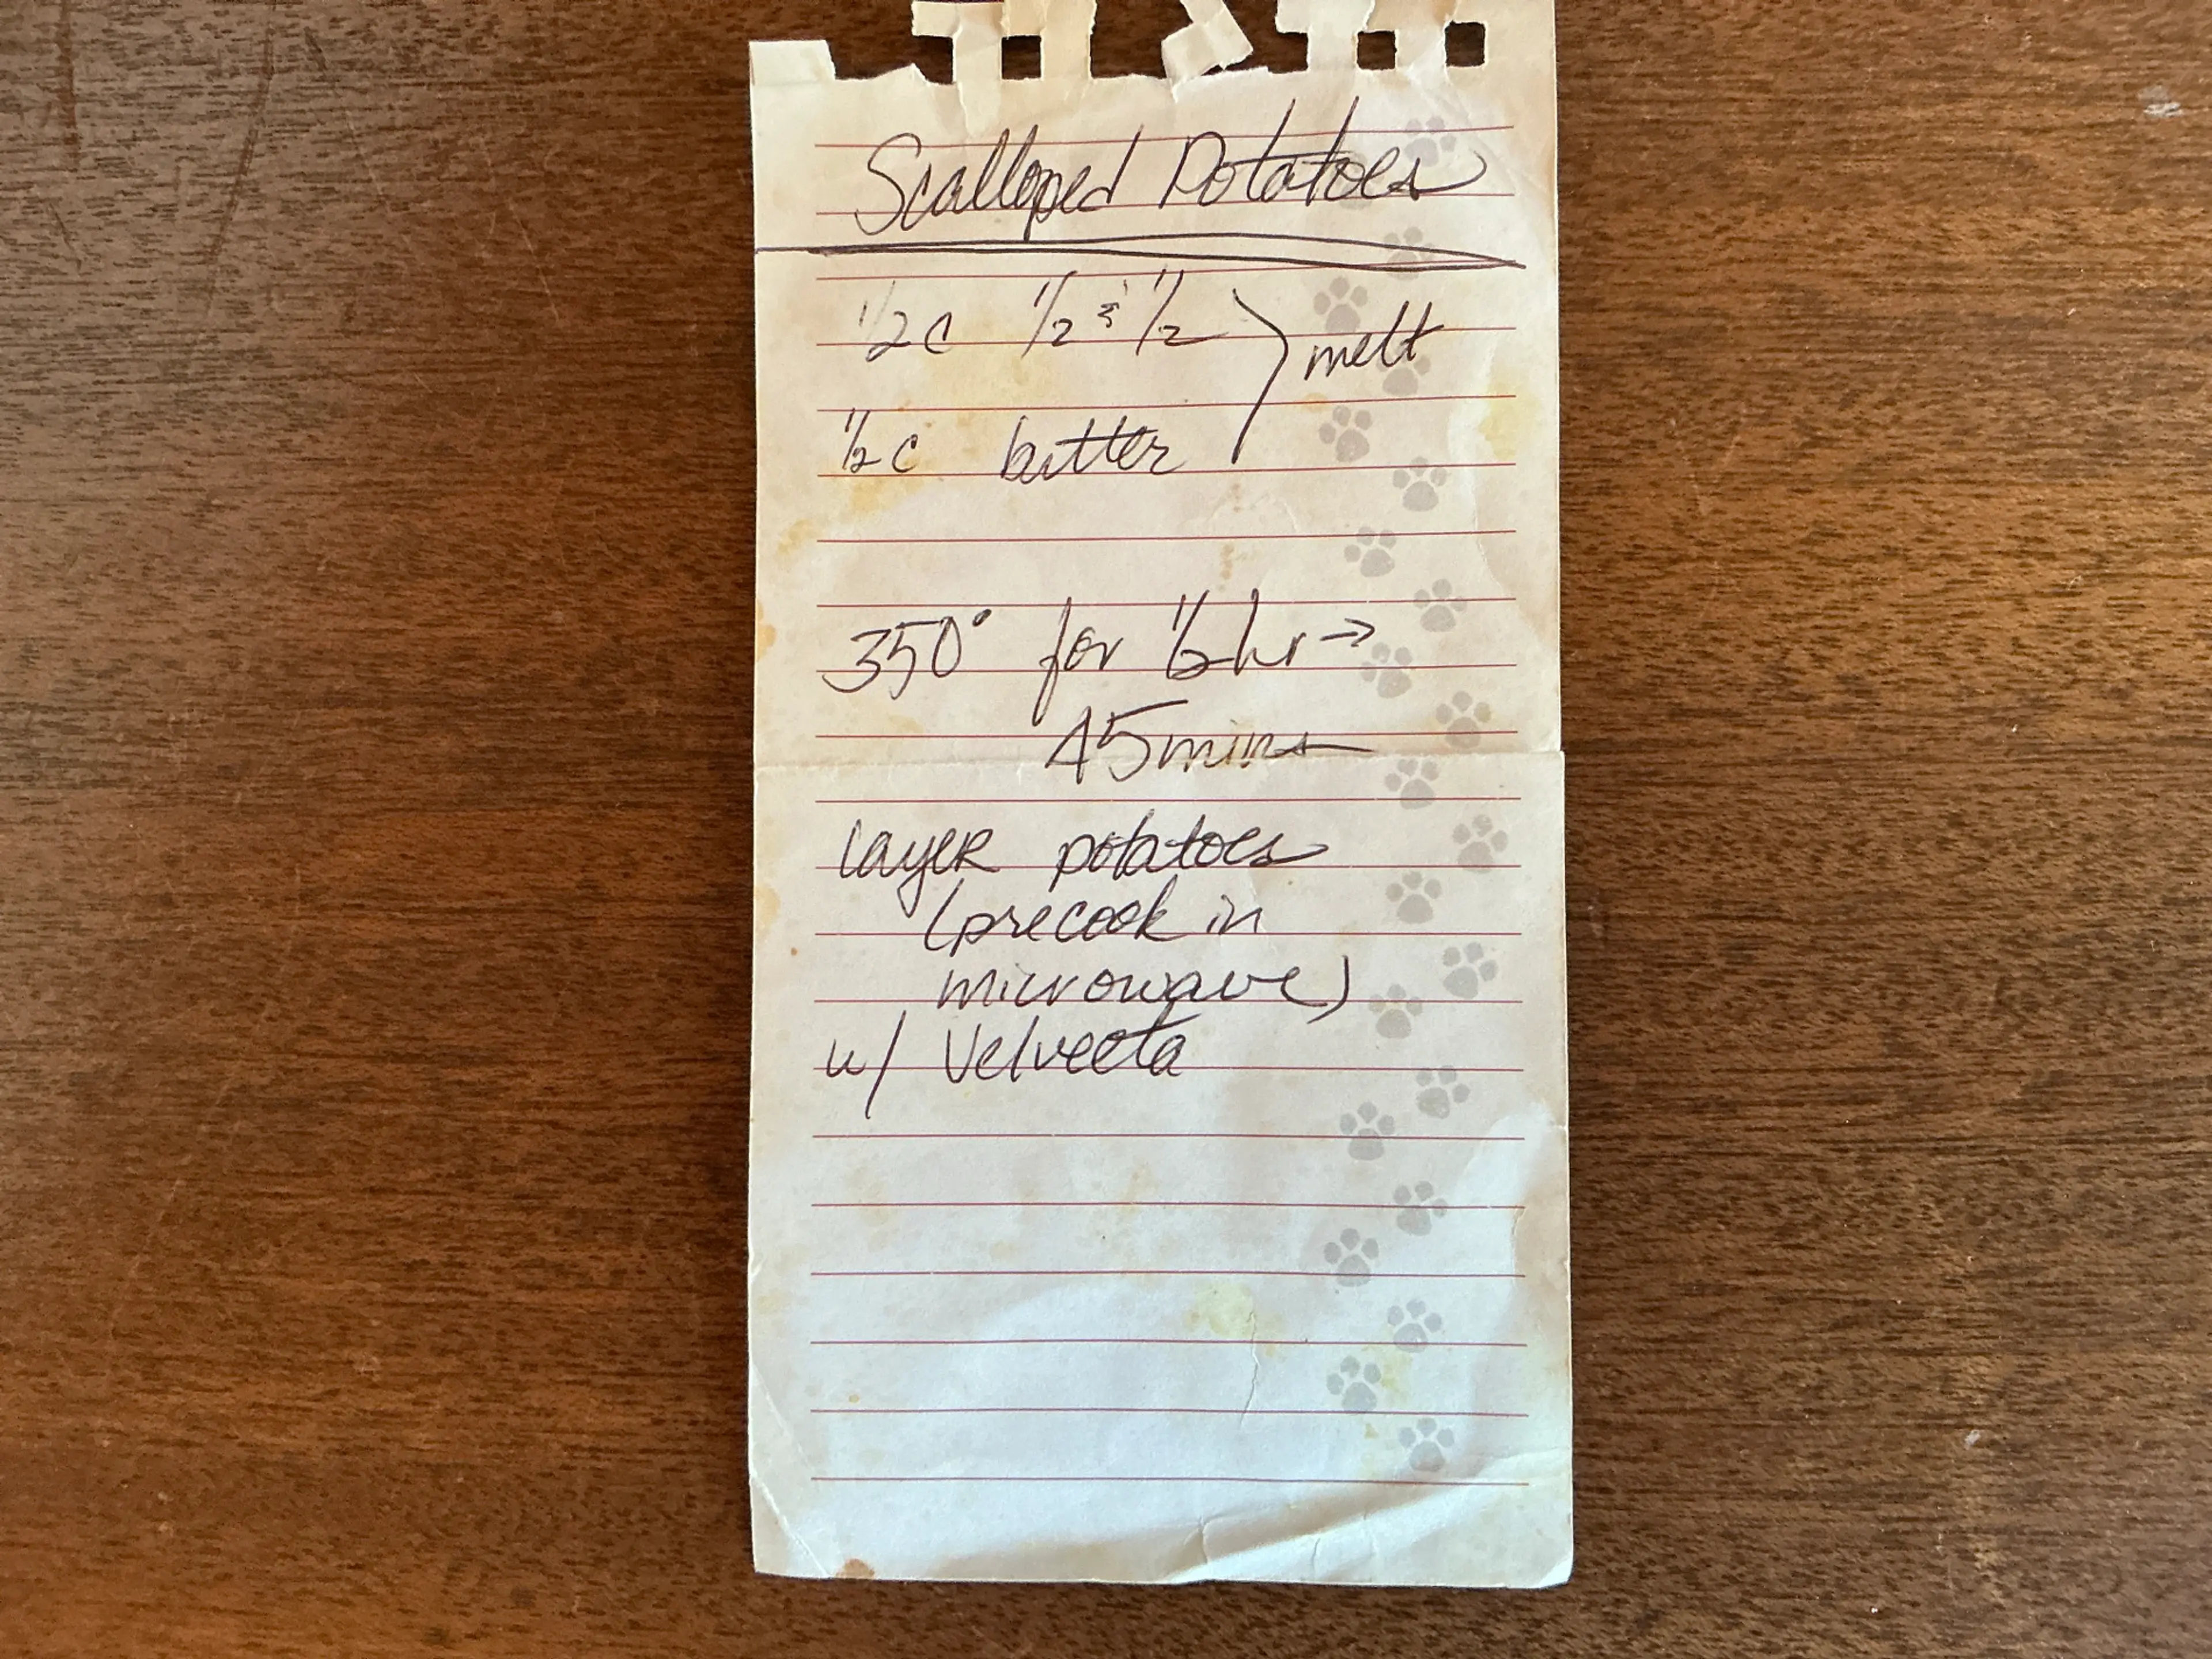 Scalloped Potatoes
1/2 c 1/2 & 1/2 melt
1/2 c butter
350° for 1/2 hr →
45 mins
layer potatoes
(precook in
microwave)
w/ Velveeta